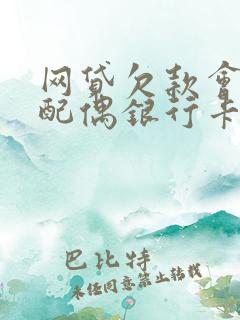 网贷欠款會
配偶銀行卡
巴比特
未经同意禁止转载